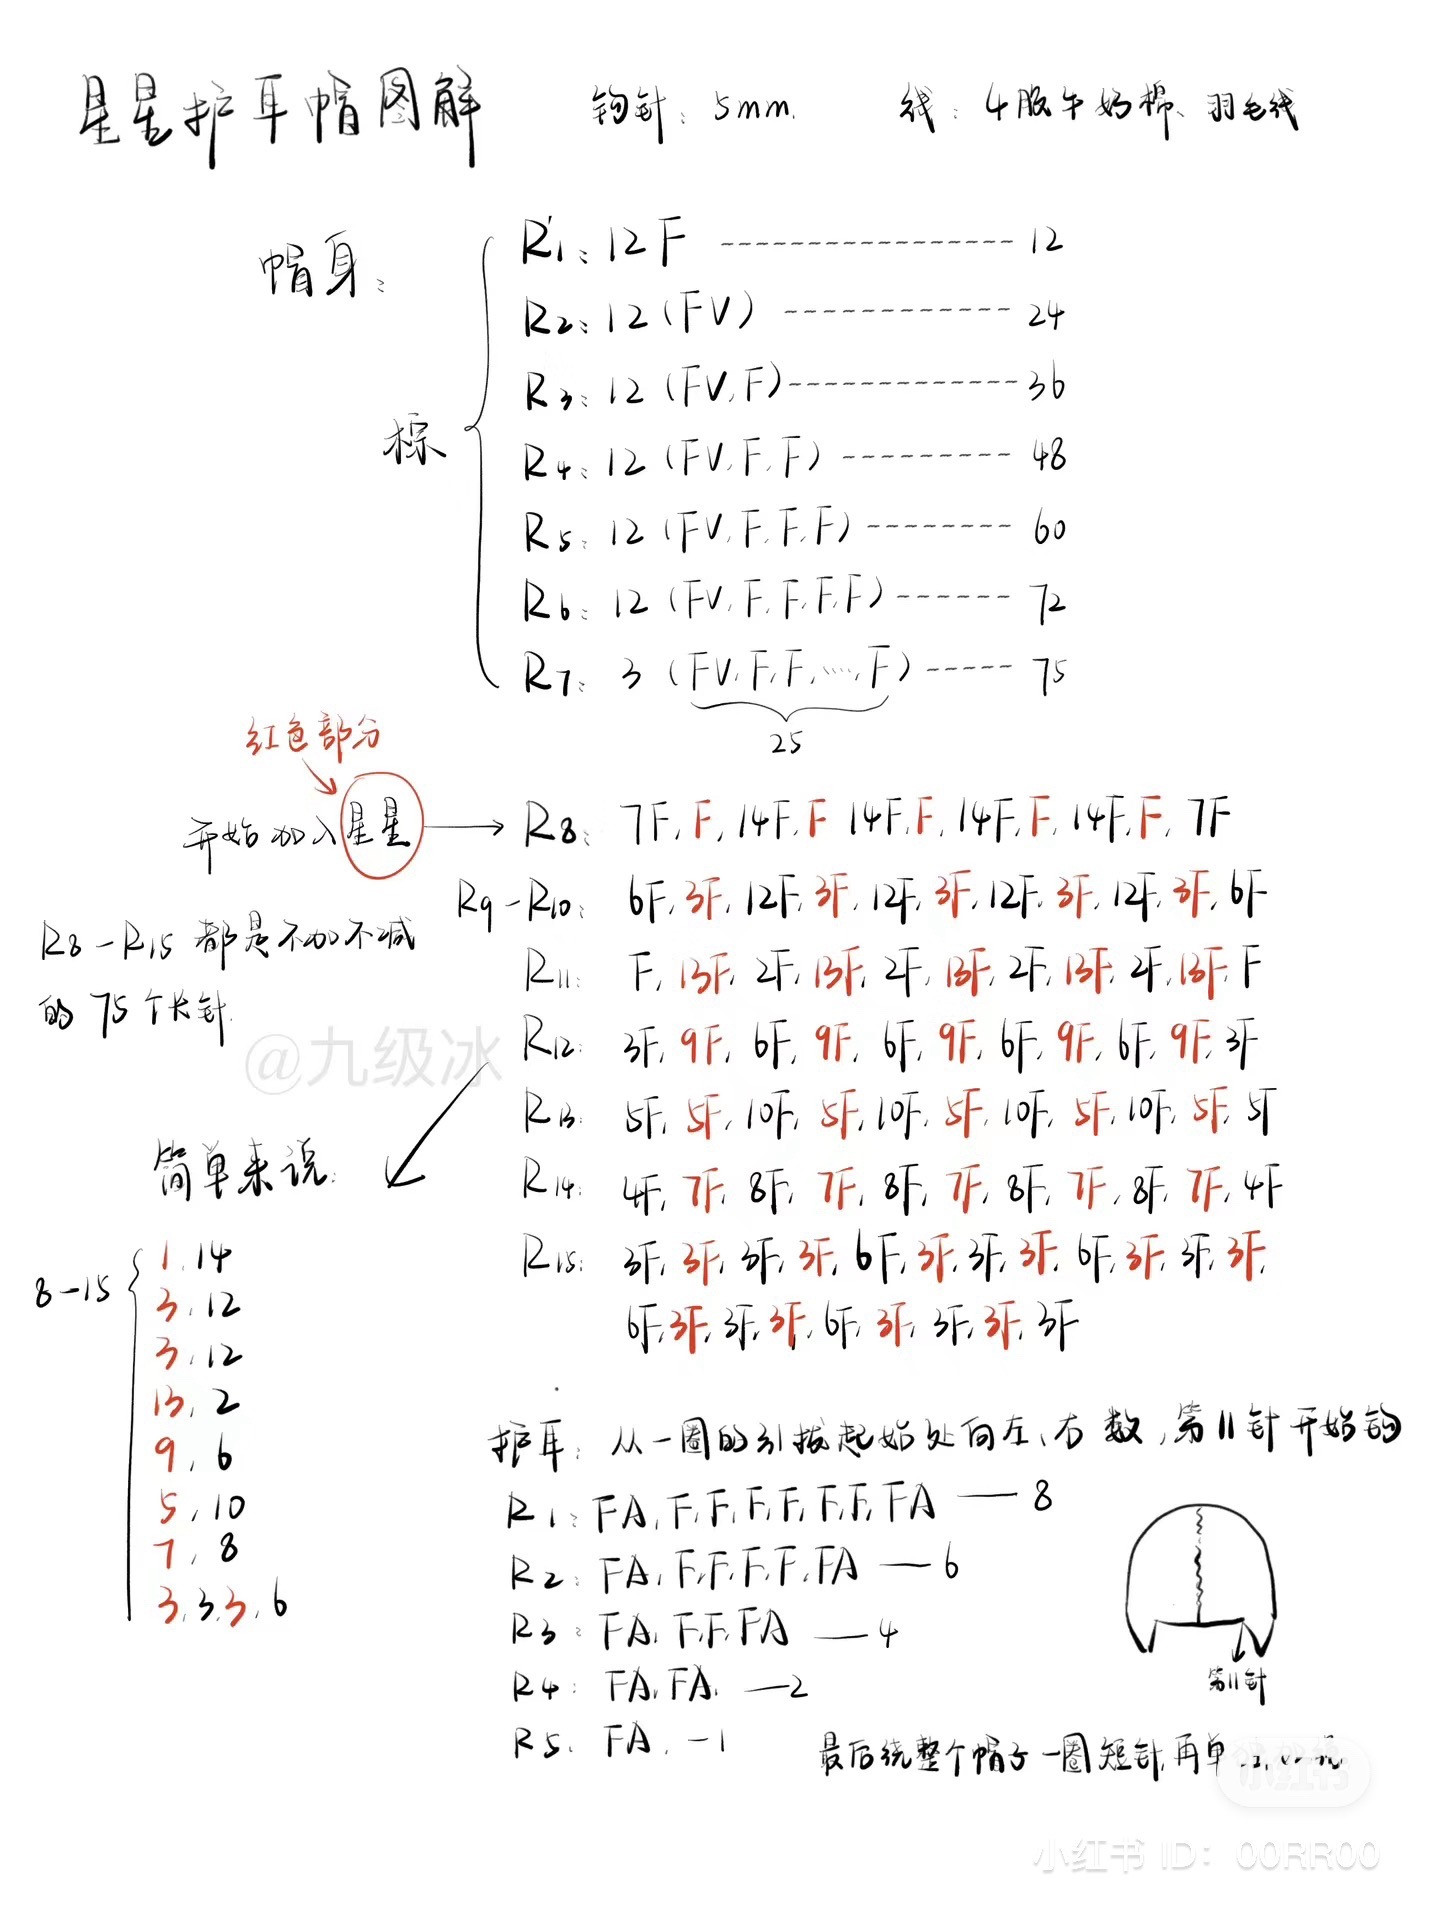 星星护耳帽图解 钩针：5mm. 线：4股牛奶棉、羽毛线
帽身：
棕
R1：12F ---------------- 12
R2：12(FV) ------------ 24
R3：12(FV,F) ------------- 36
R4：12(FV,F,F) --------- 48
R5：12(FV,F,F,F) -------- 60
R6：12(FV,F,F,F,F) ------ 72
R7：3(FV,F,F,……,F) ----- 75
25
红色部分
开始加入星星 → R8：7F,F,14F,F 14F,F,14F,F,14F,F,7F
R8-R15都是不加不减
的75个长针.
R9-R10：6F,3F,12F,3F,12F,3F,12F,3F,12F,3F,6F
R11：F,13F,2F,13F,2F,13F,2F,13F,2F,13F,F
R12：3F,9F,6F,9F,6F,9F,6F,9F,6F,9F,3F
R13：5F,5F,10F,5F,10F,5F,10F,5F,10F,5F,5F
R14：4F,7F,8F,7F,8F,7F,8F,7F,8F,7F,4F
R15：3F,3F,3F,3F,6F,3F,3F,3F,6F,3F,3F,3F,
6F,3F,3F,3F,6F,3F,3F,3F,3F
@九级冰
简单来说：
8-15
1,14
3,12
3,12
13,2
9,6
5,10
7,8
3,3,3,6
护耳：从一圈的引拔起始处向左、右数,第11针开始钩
R1：FA,F,F,F,F,F,F,FA — 8
R2：FA,F,F,F,F,FA — 6
R3：FA,F,F,FA — 4
R4：FA,FA, — 2
R5：FA, - 1
第11针
最后绕整个帽子一圈短针,再单
小红书
小红书 ID：00RR00